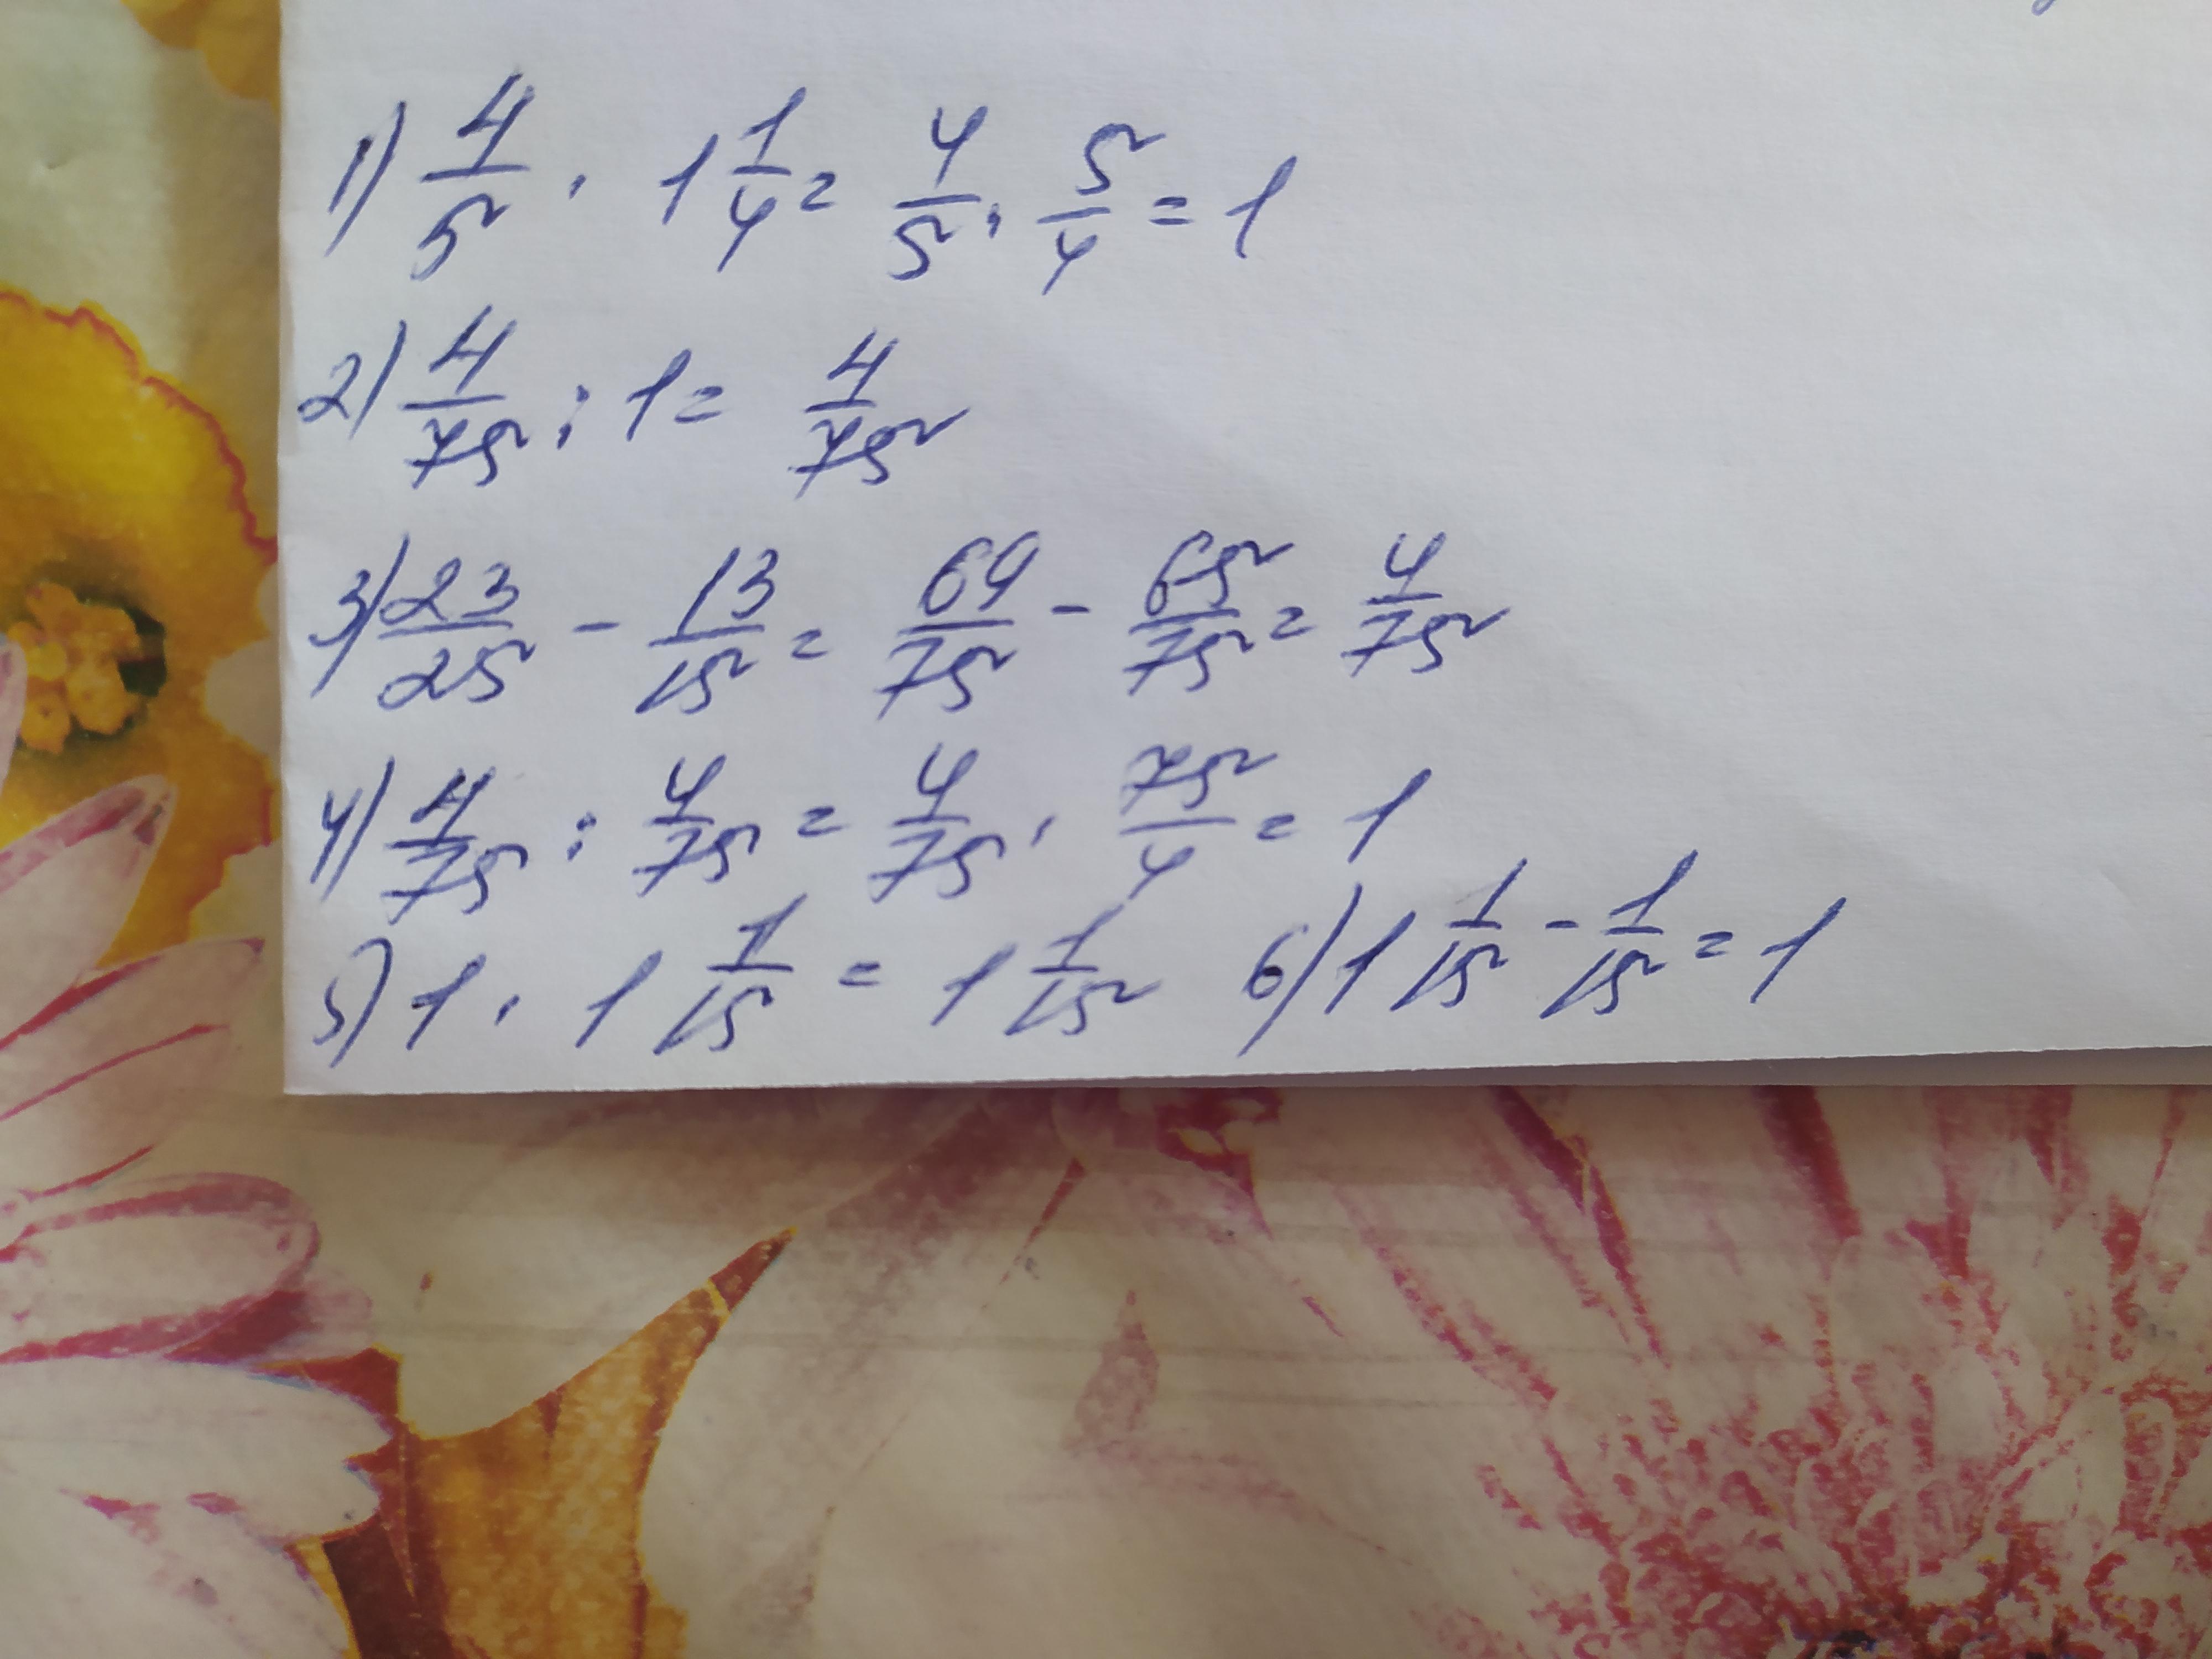 1) 4/5 · 1 1/4 = 4/5 · 5/4 = 1
2) 4/75 : 1 = 4/75
3) 23/25 - 13/15 = 69/75 - 65/75 = 4/75
4) 4/75 : 4/75 = 4/75 · 75/4 = 1
5) 1 · 1 1/15 = 1 1/15 6) 1 1/15 - 1/15 = 1